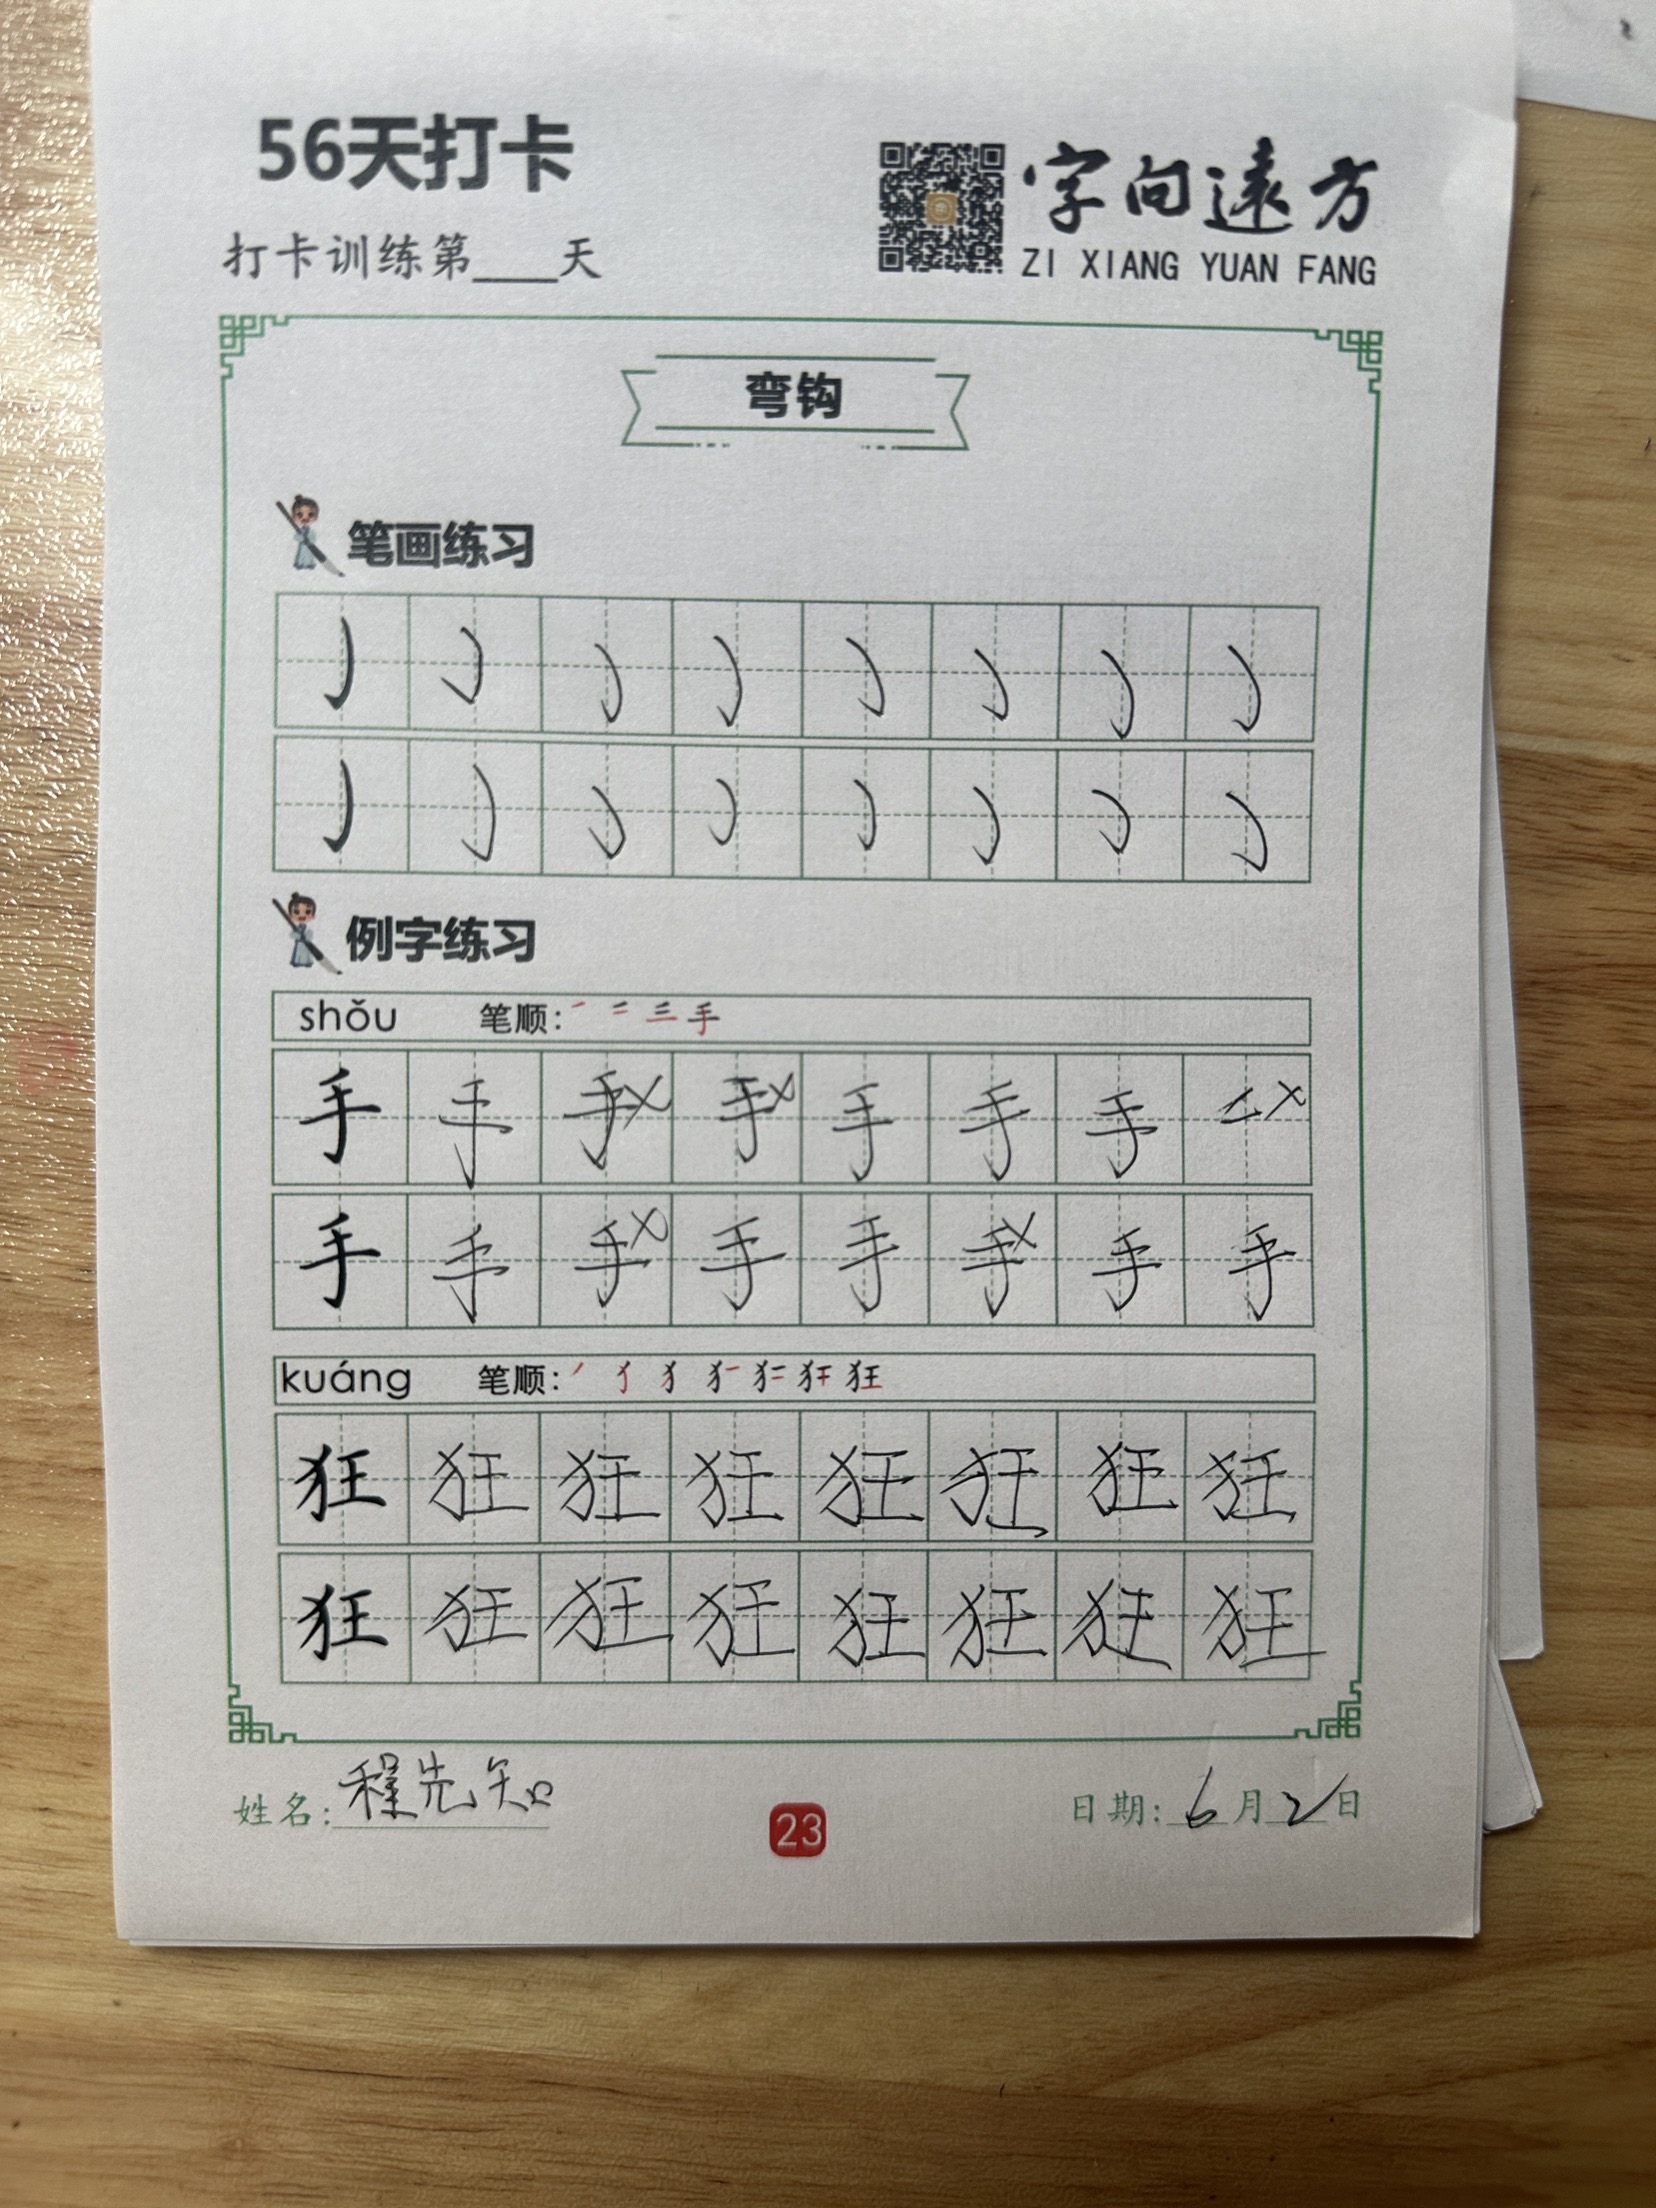 56天打卡
字向遠方
打卡训练第____天
ZI XIANG YUAN FANG
弯钩
笔画练习
例字练习
shǒu 笔顺: 一 二 三 手
手 手 手 手 手 手 手
手 手 手 手 手 手 手 手
kuáng 笔顺: 狂
狂 狂 狂 狂 狂 狂 狂 狂
狂 狂 狂 狂 狂 狂 狂 狂
姓名: 程先知
23
日期: 6月2日